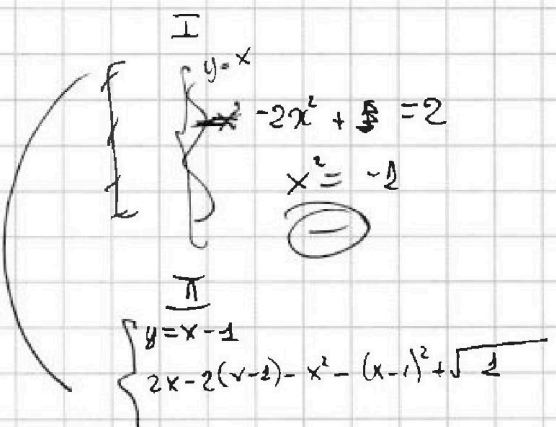 I
y=x
-2x² + = 2
x² = -1
II
y=x-1
2x-2(x-1)-x²-(x-1)²+√1